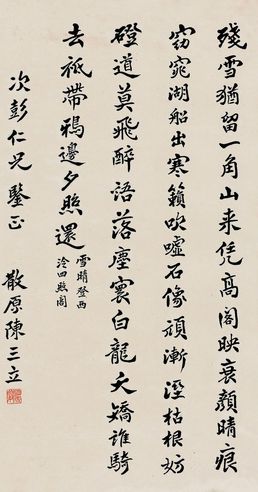 殘雪猶留一角山来凭高閣映衰顏晴痕
窈窕湖船出寒籟吹噓石像頑漸溼枯根妨
磴道莫飛醉語落塵寰白龍夭矯誰騎
去祇帶鴉邊夕照還
雪晴登西
泠四照閣
次彭仁兄鑒正
散原陳三立